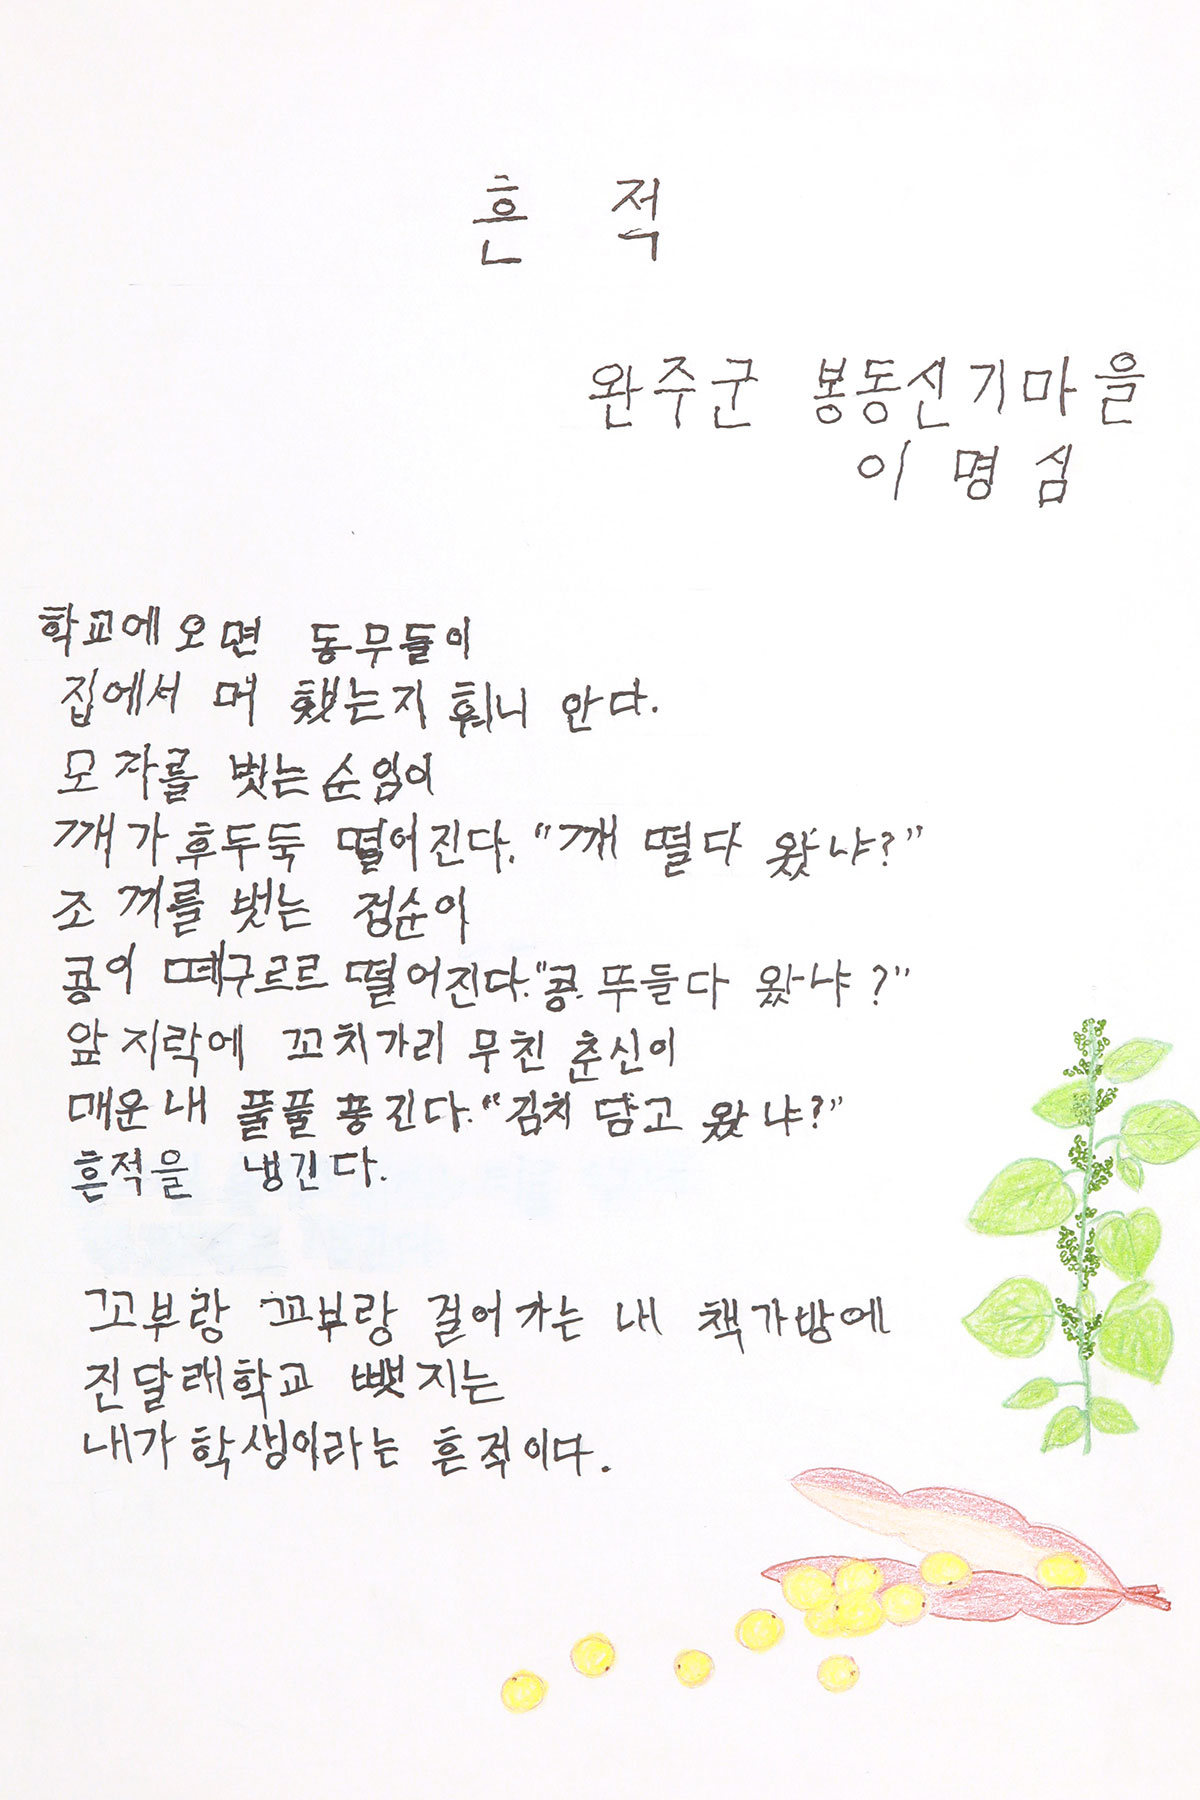 흔 적
완주군 봉동신기마을
이 명 심
학교에 오면 동무들이
집에서 머 했는지 훠니 안다.
모자를 벗는 순임이
깨가 후두둑 떨어진다. "깨 떨다 왔냐?"
조끼를 벗는 정순이
콩이 떼구르르 떨어진다. "콩 뚜들다 왔냐?"
앞지락에 꼬치가리 무친 춘신이
매운내 풀풀 풍긴다. "김치 담고 왔냐?"
흔적을 냉긴다.
꼬부랑 꼬부랑 걸어가는 내 책가방에
진달래학교 뺏지는
내가 학생이라는 흔적이다.